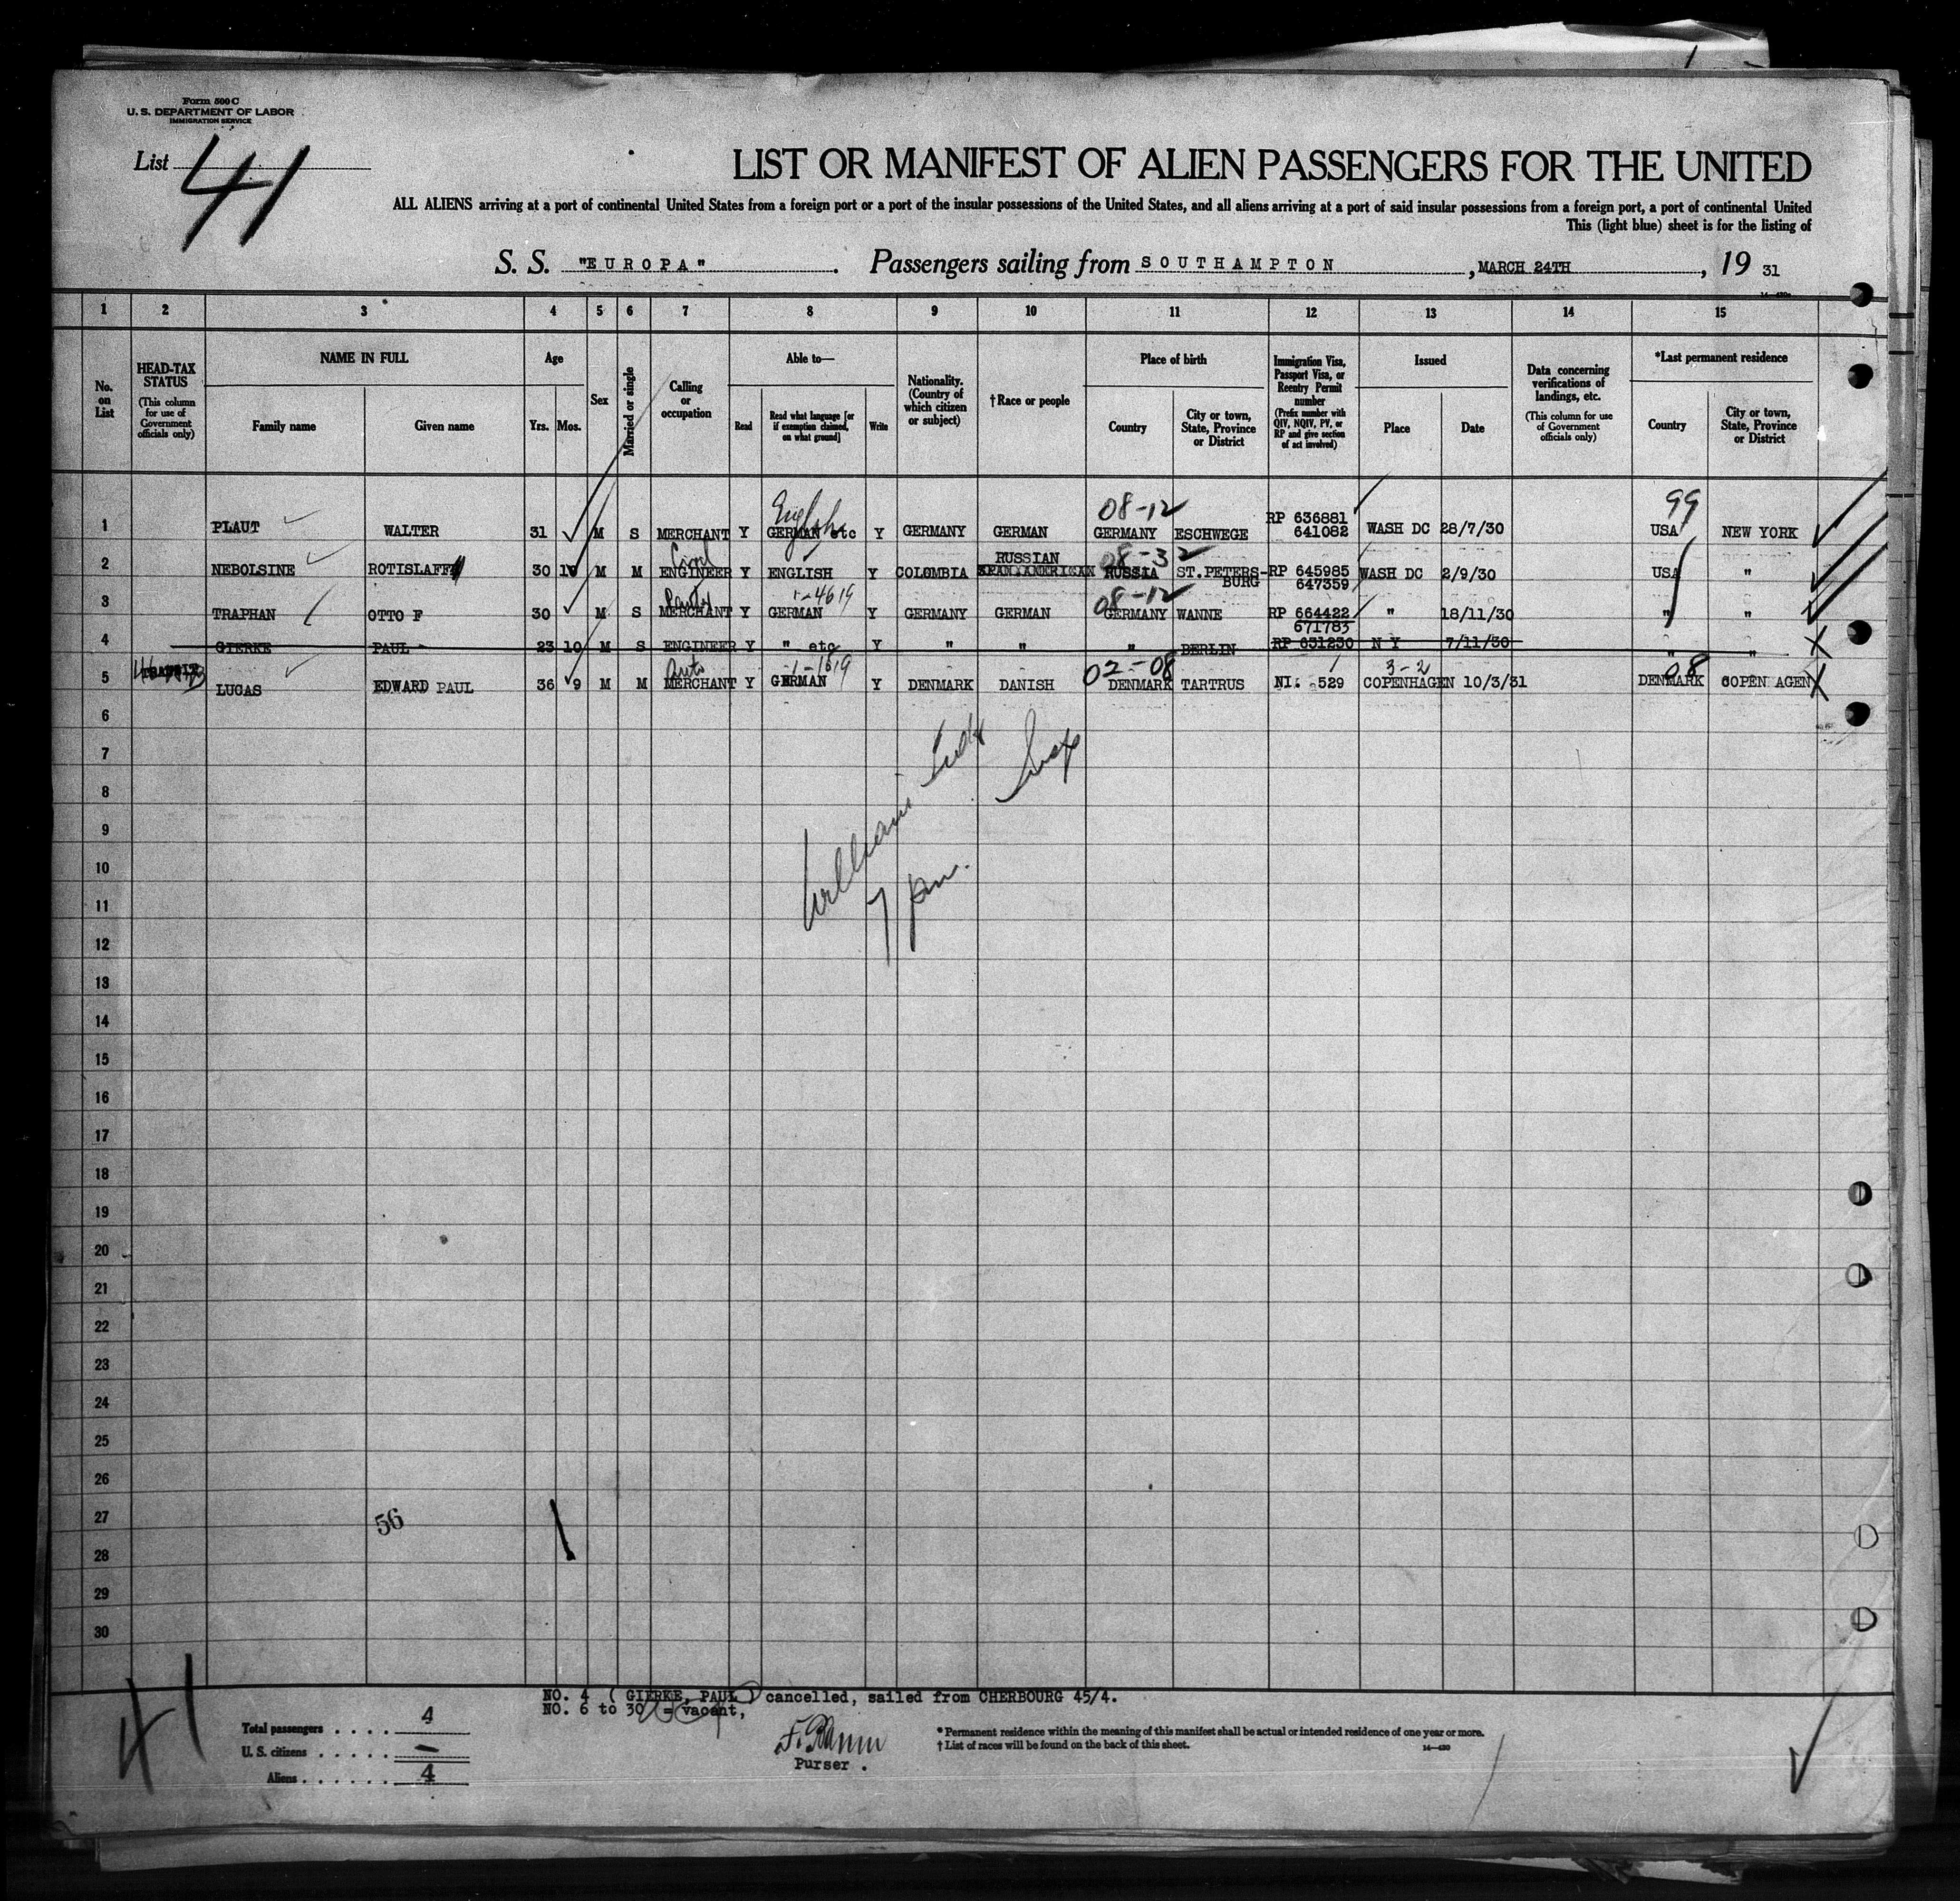 Form 500 C
U. S. DEPARTMENT OF LABOR
IMMIGRATION SERVICE
List 41
LIST OR MANIFEST OF ALIEN PASSENGERS FOR THE UNITED
ALL ALIENS arriving at a port of continental United States from a foreign port or a port of the insular possessions of the United States, and all aliens arriving at a port of said insular possessions from a foreign port, a port of continental United
This (light blue) sheet is for the listing of
S. S. "EUROPA" . Passengers sailing from SOUTHAMPTON , MARCH 24TH , 19 31
1 2 3 4 5 6 7 8 9 10 11 12 13 14 15
No. on List
HEAD-TAX STATUS (This column for use of Government officials only)
NAME IN FULL
Family name
Given name
Age
Yrs. Mos.
Sex
Married or single
Calling or occupation
Able to—
Read
Read what language [or if exemption claimed, on what ground]
Write
Nationality. (Country of which citizen or subject)
† Race or people
Place of birth
Country
City or town, State, Province or District
Immigration Visa, Passport Visa, or Reentry Permit number
(Prefix number with QIV, NQIV, PV, or RP and give section of act involved)
Issued
Place
Date
Data concerning verifications of landings, etc.
(This column for use of Government officials only)
*Last permanent residence
Country
City or town, State, Province or District
English 08-12 99
1 PLAUT WALTER 31 M S MERCHANT Y GERMAN etc Y GERMANY GERMAN GERMANY ESCHWEGE RP 636881 641082 WASH DC 28/7/30 USA NEW YORK
Civil RUSSIAN 08-32
2 NEBOLSINE ROTISLAFF 30 10 M M ENGINEER Y ENGLISH Y COLOMBIA SPAN.AMERICAN RUSSIA ST.PETERS-BURG RP 645985 647359 WASH DC 2/9/30 USA "
1-4619 08-12
3 TRAPHAN OTTO F 30 M S MERCHANT Y GERMAN Y GERMANY GERMAN GERMANY WANNE RP 664422 671783 " 18/11/30 " "
4 GIERKE PAUL 23 10 M S ENGINEER Y " etc Y " " " BERLIN RP 631230 N Y 7/11/30 " "
Auto 1-1619 02-08 3-2 08
5 LUCAS EDWARD PAUL 36 9 M M MERCHANT Y GERMAN Y DENMARK DANISH DENMARK TARTRUS NI. 529 COPENHAGEN 10/3/31 DENMARK COPEN AGEN
6
7
8
9
William
10
7 pm.
11
12
13
14
15
16
17
18
19
20
21
22
23
24
25
26
27
56
28
29
30
41
NO. 4 ( GIERKE, PAUL ) cancelled, sailed from CHERBOURG 45/4.
NO. 6 to 30 = vacant,
Total passengers . . . . 4
U. S. citizens . . . . . —
Aliens . . . . . . 4
Purser .
* Permanent residence within the meaning of this manifest shall be actual or intended residence of one year or more.
† List of races will be found on the back of this sheet.
14—430